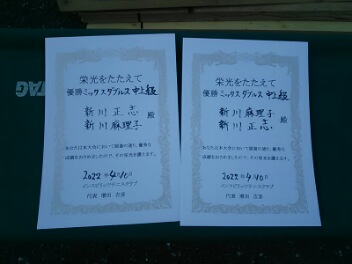 栄光をたたえて
優勝ミックスダブルス中上級
新川 正志 殿
新川 麻理子
あなたは本大会において頭書の通り、優秀な
成績をおさめましたので、その栄光を讃えます。
2022年4月10日
インスピリッツテニスクラブ
代表 増田 吉彦
栄光をたたえて
優勝ミックスダブルス中上級
新川 麻理子 殿
新川 正志
あなたは本大会において頭書の通り、優秀な
成績をおさめましたので、その栄光を讃えます。
2022年4月10日
インスピリッツテニスクラブ
代表 増田 吉彦